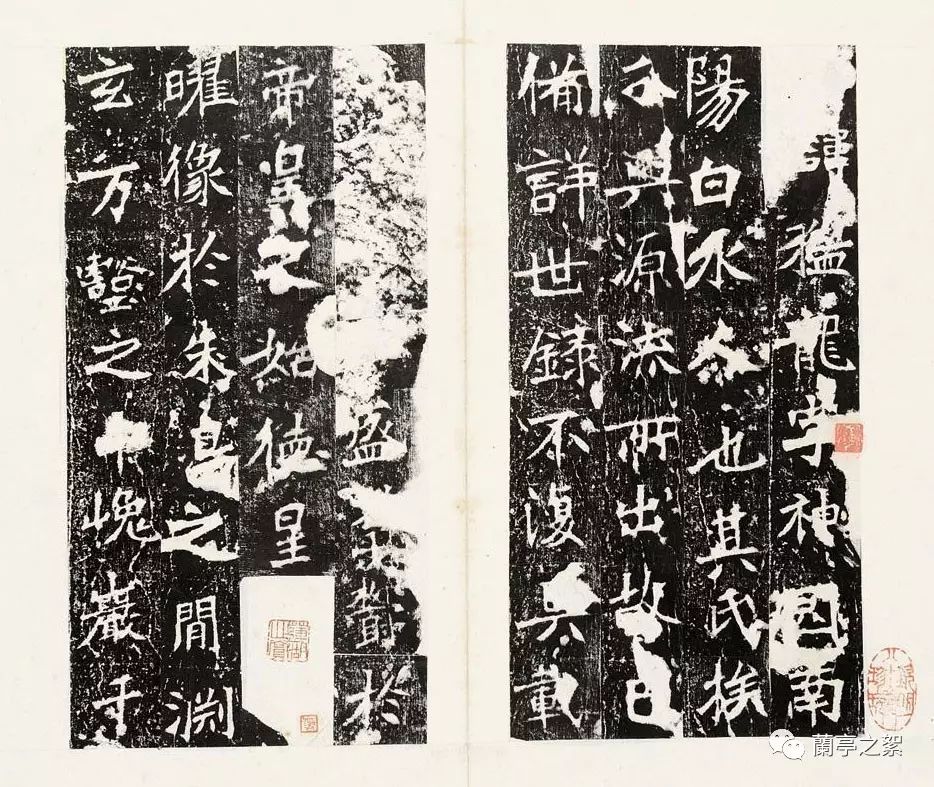 諱猛龍字神囧南
陽白水人也其氏族
分興源流所出故已
備詳世錄不復具載
盈鬱於
帝皇之始德星
曜像於朱鳥之間淵
玄万壑之中巉巖千
蘭亭之絮